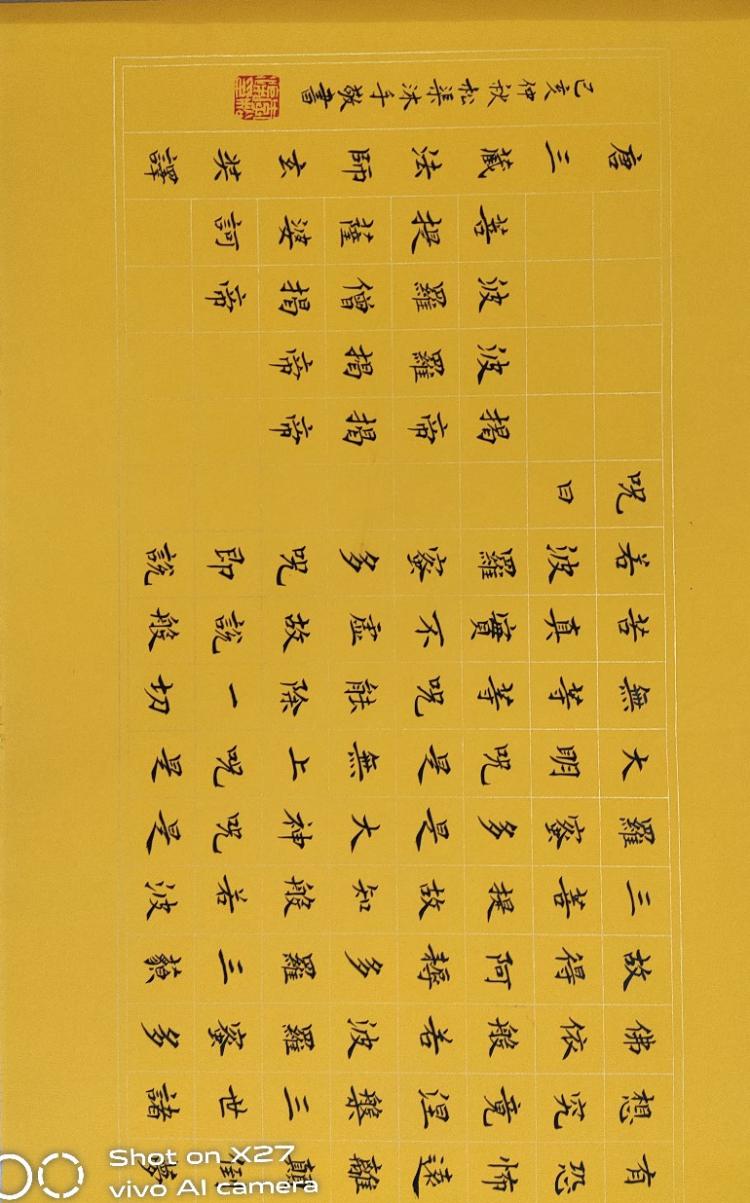 有恐怖遠離顛倒夢
想究竟涅槃三世諸
佛依般若波羅蜜多
故得阿耨多羅三藐
三菩提故知般若波
羅蜜多是大神咒是
大明咒是無上咒是
無等等咒能除一切
苦真實不虛故說般
若波羅蜜多咒即說
咒曰
揭帝揭帝
波羅揭帝
波羅僧揭帝
菩提薩婆訶
唐三藏法師玄奘譯
己亥仲秋松渠沐手敬書
Shot on X27
vivo AI camera